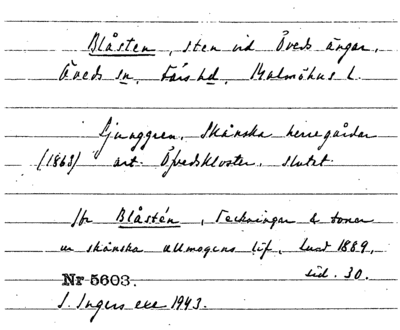 Blåsten, sten vid Öveds ängar,
Öveds sn, Färs hd, Malmöhus l.
Ljunggren, Skånska herregårdar
(1863) art. Öfvedskloster, slutet.
jfr Blåstén, Teckningar & toner
ur skånska allmogens lif, Lund 1889,
sid. 30.
Nr 5603.
S. Ingers exc 1943.